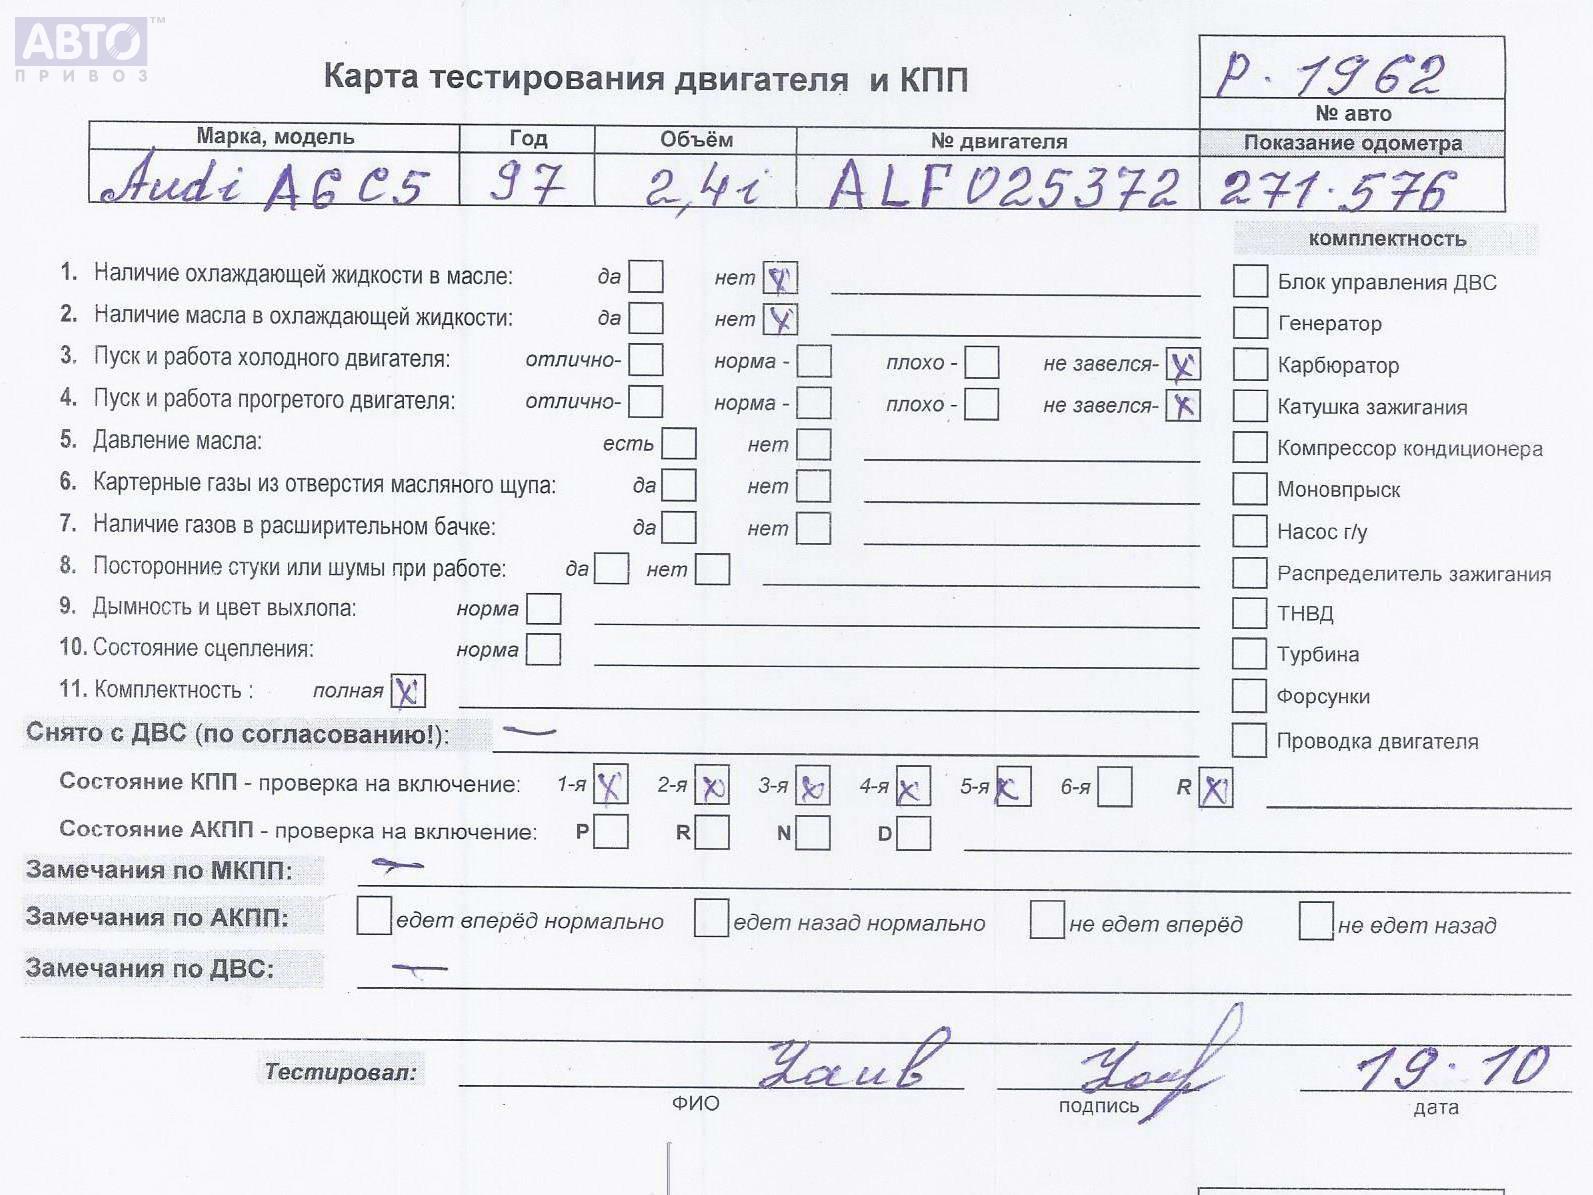 АВТО™
ПРИВОЗ
Карта тестирования двигателя и КПП
Р. 1962
№ авто
Марка, модель Год Объём № двигателя Показание одометра
Audi A6 C5 97 2,4i ALF025372 271.576
комплектность
1. Наличие охлаждающей жидкости в масле: да нет X
Блок управления ДВС
2. Наличие масла в охлаждающей жидкости: да нет X
Генератор
3. Пуск и работа холодного двигателя: отлично- норма - плохо - не завелся- X
Карбюратор
4. Пуск и работа прогретого двигателя: отлично- норма - плохо - не завелся- X
Катушка зажигания
5. Давление масла: есть нет
Компрессор кондиционера
6. Картерные газы из отверстия масляного щупа: да нет
Моновпрыск
7. Наличие газов в расширительном бачке: да нет
Насос г/у
8. Посторонние стуки или шумы при работе: да нет
Распределитель зажигания
9. Дымность и цвет выхлопа: норма
ТНВД
10. Состояние сцепления: норма
Турбина
11. Комплектность : полная X
Форсунки
Снято с ДВС (по согласованию!): —
Проводка двигателя
Состояние КПП - проверка на включение: 1-я X 2-я X 3-я X 4-я X 5-я X 6-я R X
Состояние АКПП - проверка на включение: P R N D
Замечания по МКПП: —
Замечания по АКПП: едет вперёд нормально едет назад нормально не едет вперёд не едет назад
Замечания по ДВС: —
Тестировал: 19.10
ФИО подпись дата